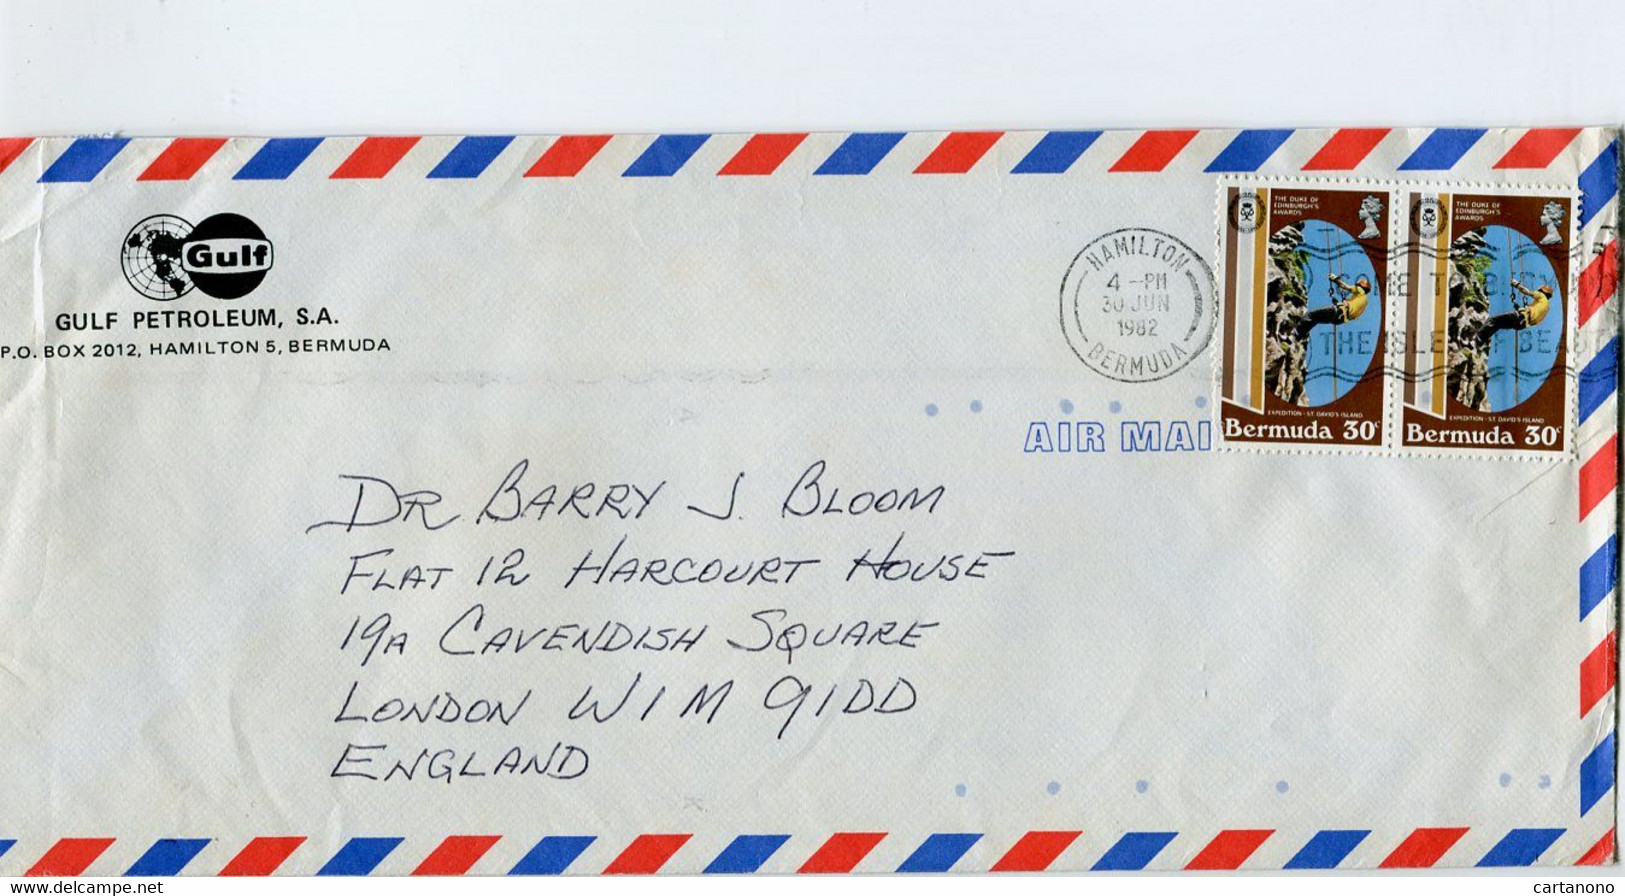 Gulf
GULF PETROLEUM, S.A.
P.O. BOX 2012, HAMILTON 5, BERMUDA
HAMILTON
4 -PM
30 JUN
1982
BERMUDA
THE DUKE OF
EDINBURGH'S
AWARDS
EXPEDITION - ST. DAVID'S ISLAND
Bermuda 30c
THE DUKE OF
EDINBURGH'S
AWARDS
EXPEDITION - ST. DAVID'S ISLAND
Bermuda 30c
THE ISLE OF BEAUT
AIR MAI
DR BARRY J. BLOOM
FLAT 12 HARCOURT HOUSE
19A CAVENDISH SQUARE
LONDON W1M 91DD
ENGLAND
delcampe.net
cartanono